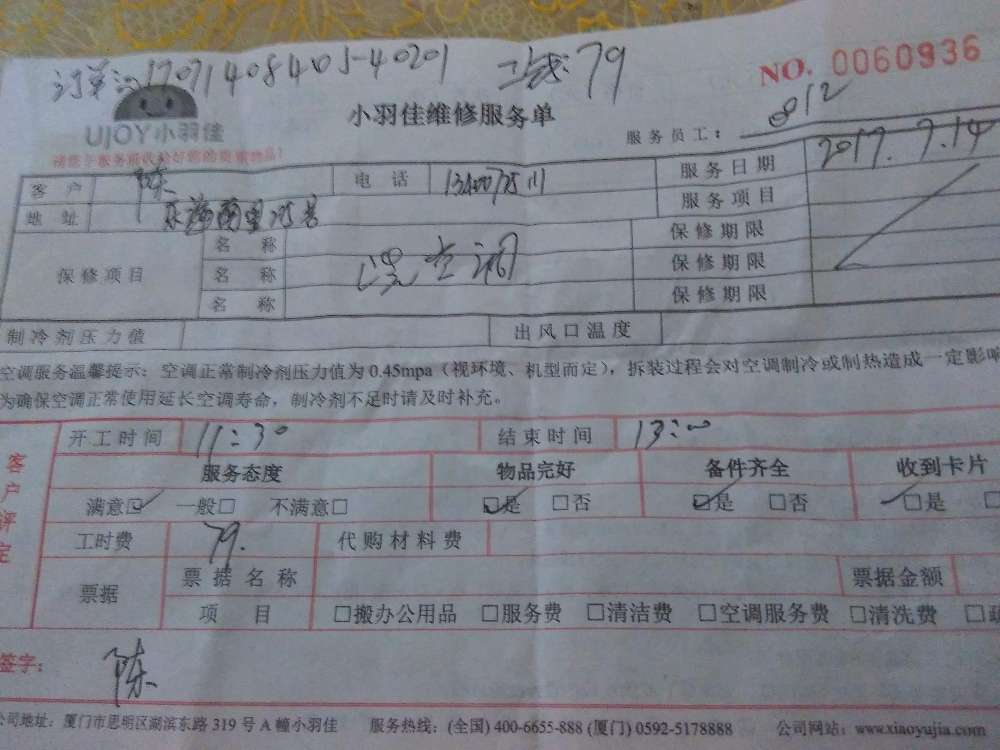 订单:17071408405-40201 工时:79 NO. 0060936
UJOY小羽佳 小羽佳维修服务单 服务员工: 812
请您于服务前收拾好您的贵重物品!
客户 陈 电话 服务日期 2017.7.14
地址 服务项目
保修项目 名称 保修期限
名称 洗空调 保修期限
名称 保修期限
制冷剂压力值 出风口温度
空调服务温馨提示:空调正常制冷剂压力值为0.45mpa(视环境、机型而定),拆装过程会对空调制冷或制热造成一定影响
为确保空调正常使用延长空调寿命,制冷剂不足时请及时补充。
客户评定
开工时间 11:30 结束时间 13:00
服务态度 物品完好 备件齐全 收到卡片
满意☑ 一般□ 不满意□ ☑是 □否 ☑是 □否 ☑是 □
工时费 79. 代购材料费
票据 票据名称 票据金额
项目 □搬办公用品 □服务费 □清洁费 □空调服务费 □清洗费
签字: 陈
公司地址:厦门市思明区湖滨东路319号A幢小羽佳 服务热线:(全国) 400-6655-888 (厦门) 0592-5178888 公司网站:www.xiaoyujia.com